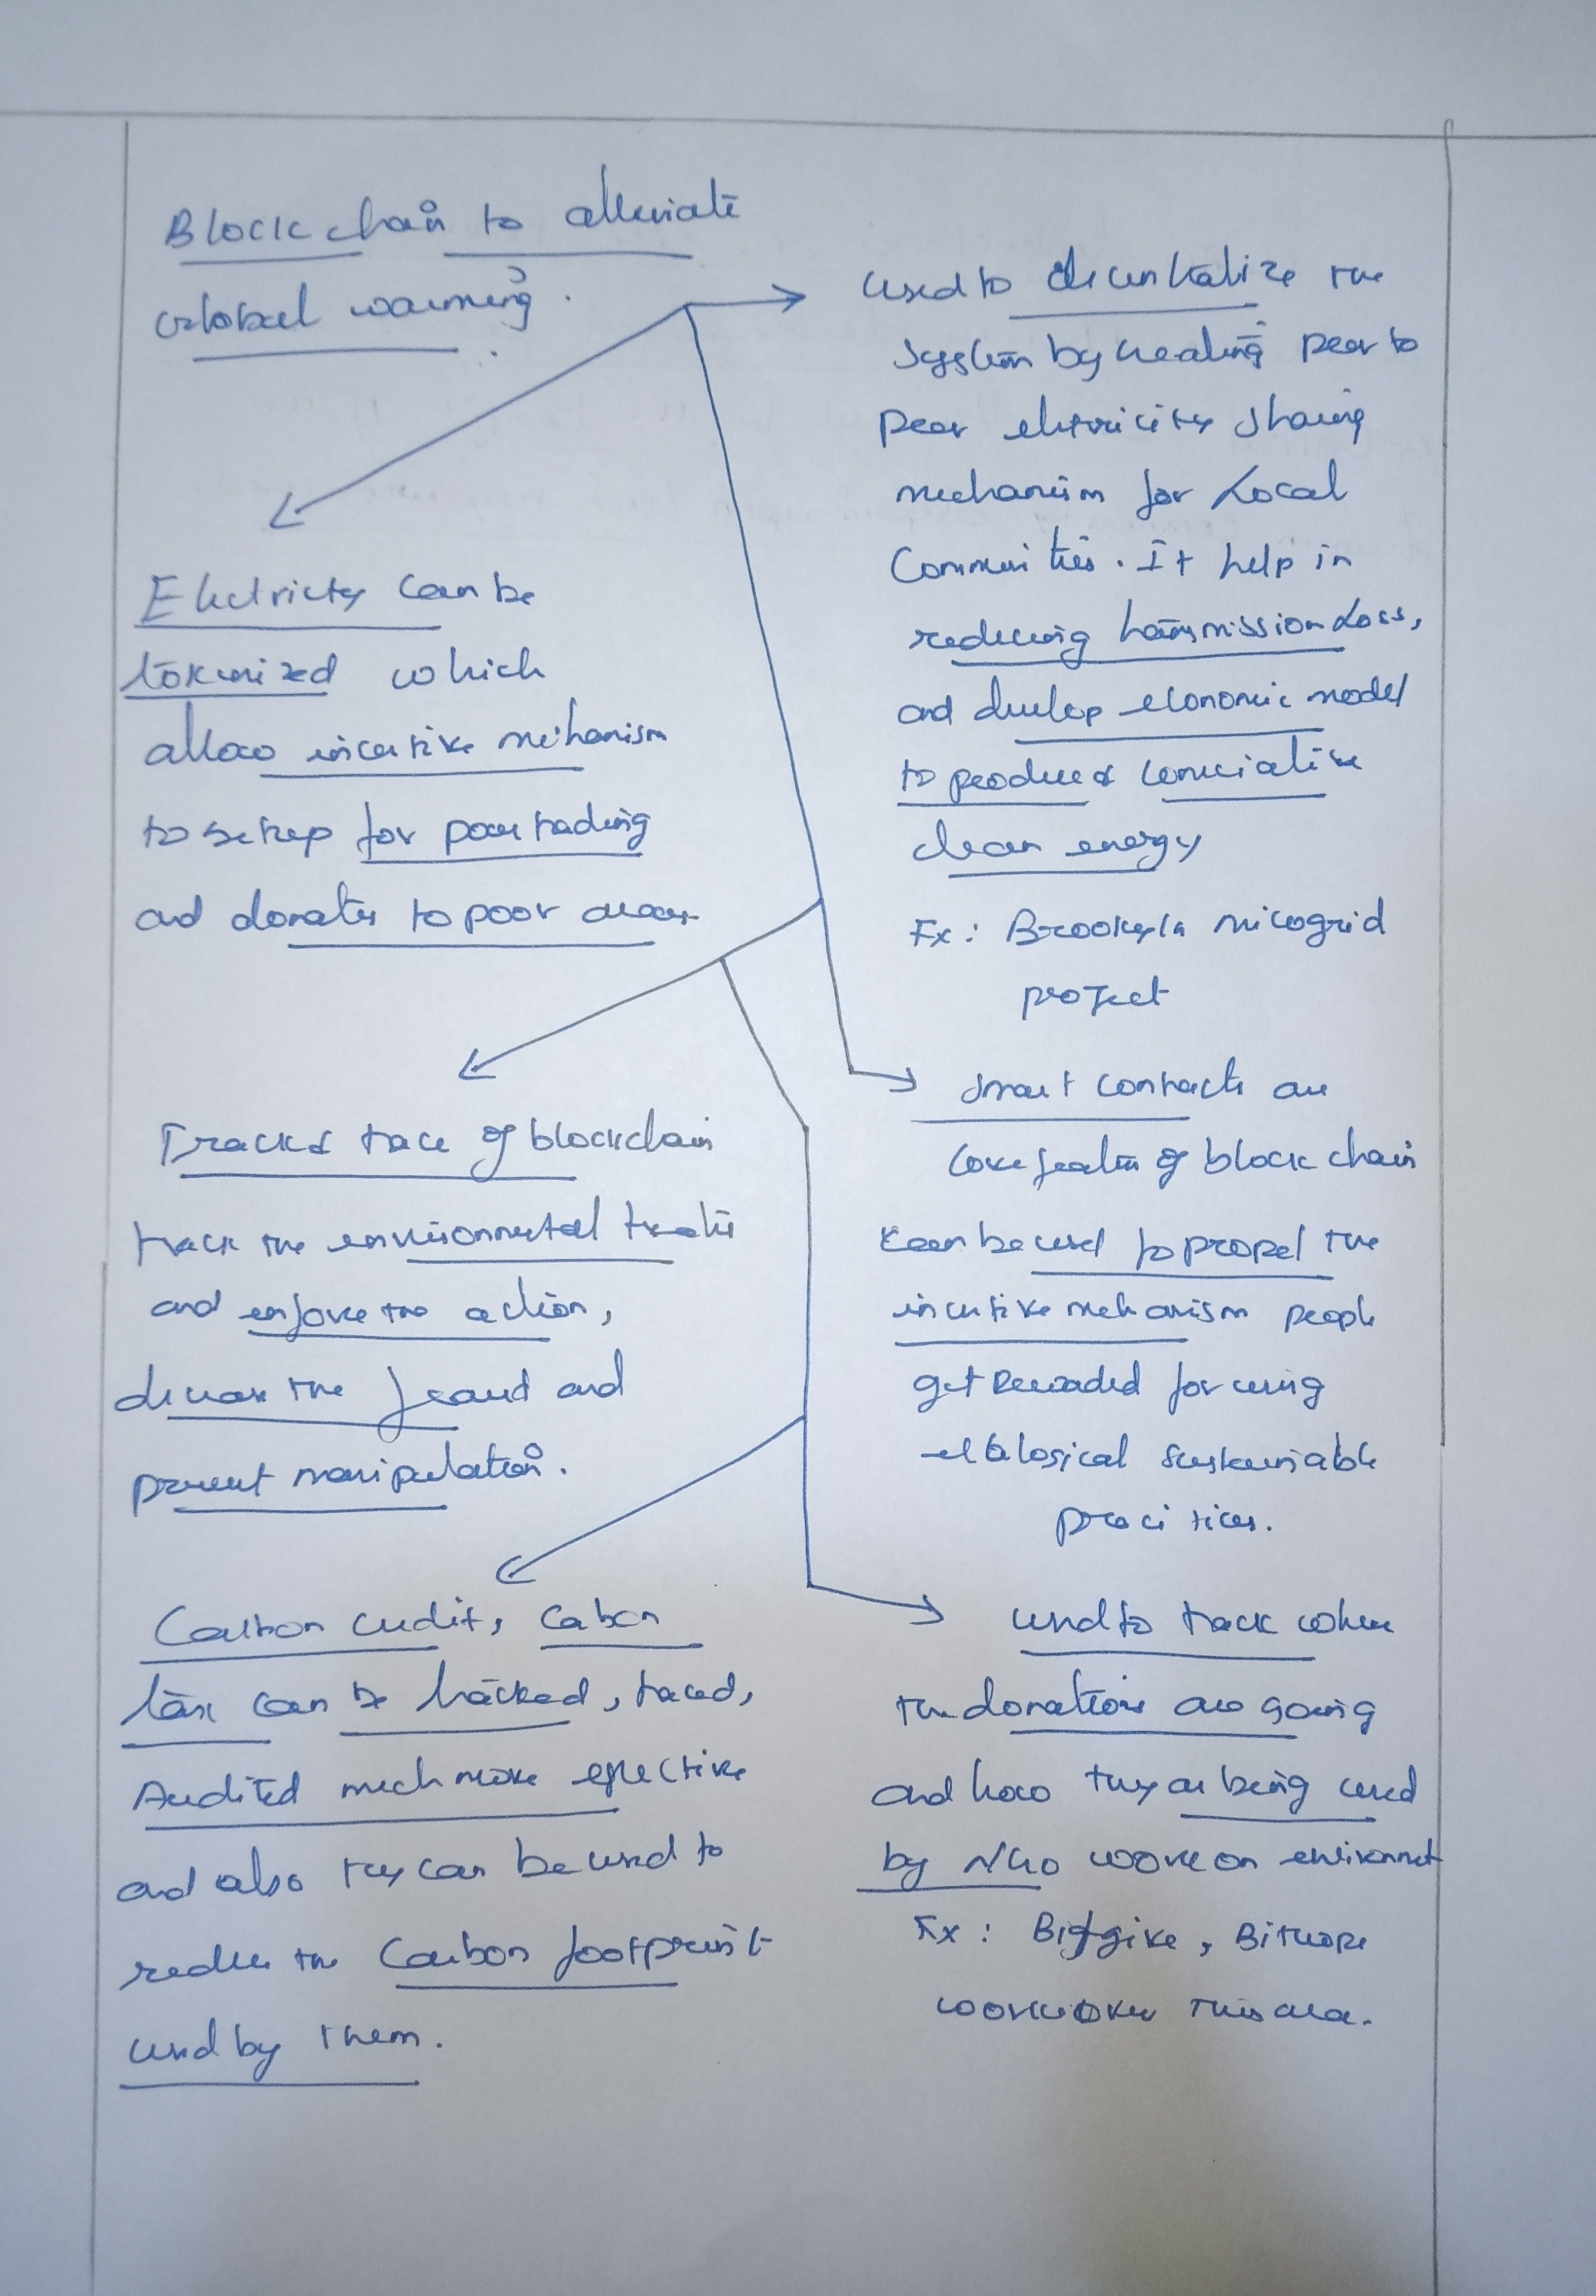 Blockchain to alleviate
Global warming.
used to decentralize the
System by creating peer to
peer electricity sharing
mechanism for Local
Communities. It help in
reducing transmission Loss,
and develop economic model
to produce &
clean energy
Ex: Brooklyn microgrid
project
Electricity can be
tokenized which
allow incentive mechanism
to setup for power trading
and donates to poor areas.
Smart contracts are
core feature of block chain
can be used to propel the
incentive mechanism people
get Rewarded for using
ecological sustainable
practices.
Track & trace of blockchain
track the environmental
and enforce the action,
decrease the fraud and
prevent manipulation.
Carbon credit, Cabon
tax can be tracked, traced,
Audited much more effective
and also they can be used to
reduce the Carbon footprint
used by them.
used to track where
the donations are going
and how they are being used
by NGO work on
Ex: Bitgive, Bithope
work over this area.